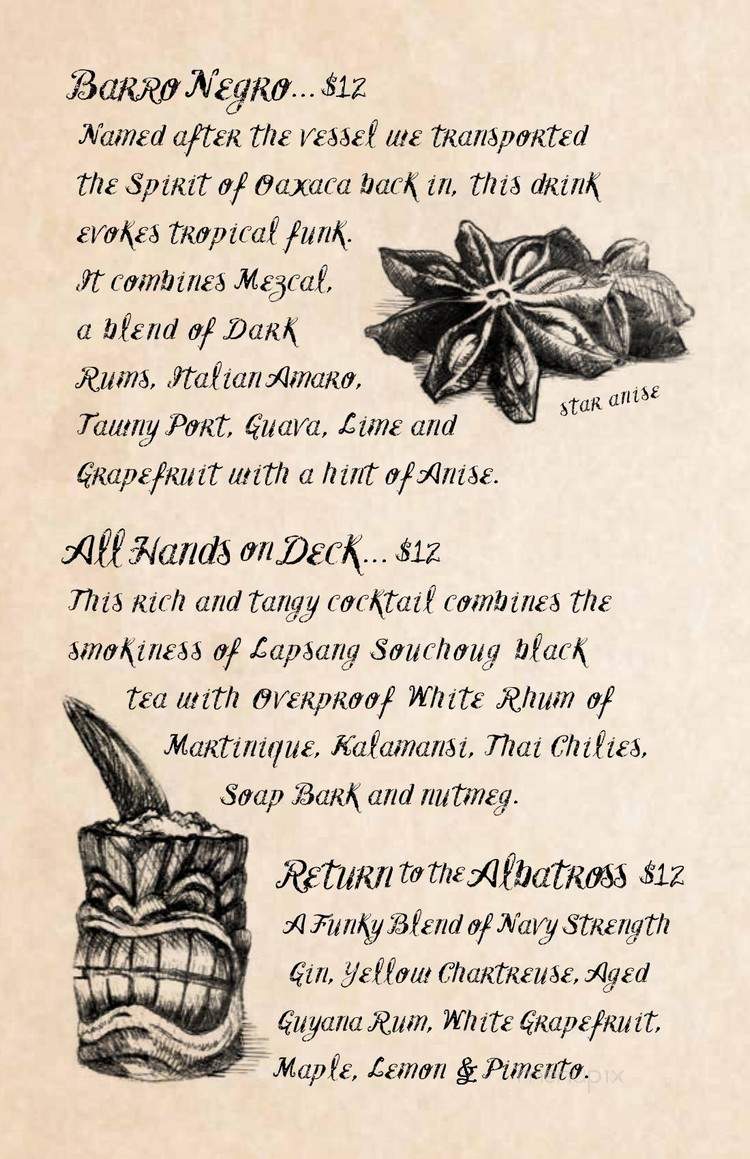 Barro Negro... $12
Named after the vessel we transported
the Spirit of Oaxaca back in, this drink
evokes tropical funk.
It combines Mezcal,
a blend of Dark
Rums, Italian Amaro,
Tawny Port, Guava, Lime and
Grapefruit with a hint of Anise.
star anise
All Hands on Deck... $12
This rich and tangy cocktail combines the
smokiness of Lapsang Souchoug black
tea with Overproof White Rhum of
Martinique, Kalamansi, Thai Chilies,
Soap Bark and nutmeg.
Return to the Albatross $12
A Funky Blend of Navy Strength
Gin, Yellow Chartreuse, Aged
Guyana Rum, White Grapefruit,
Maple, Lemon & Pimento.